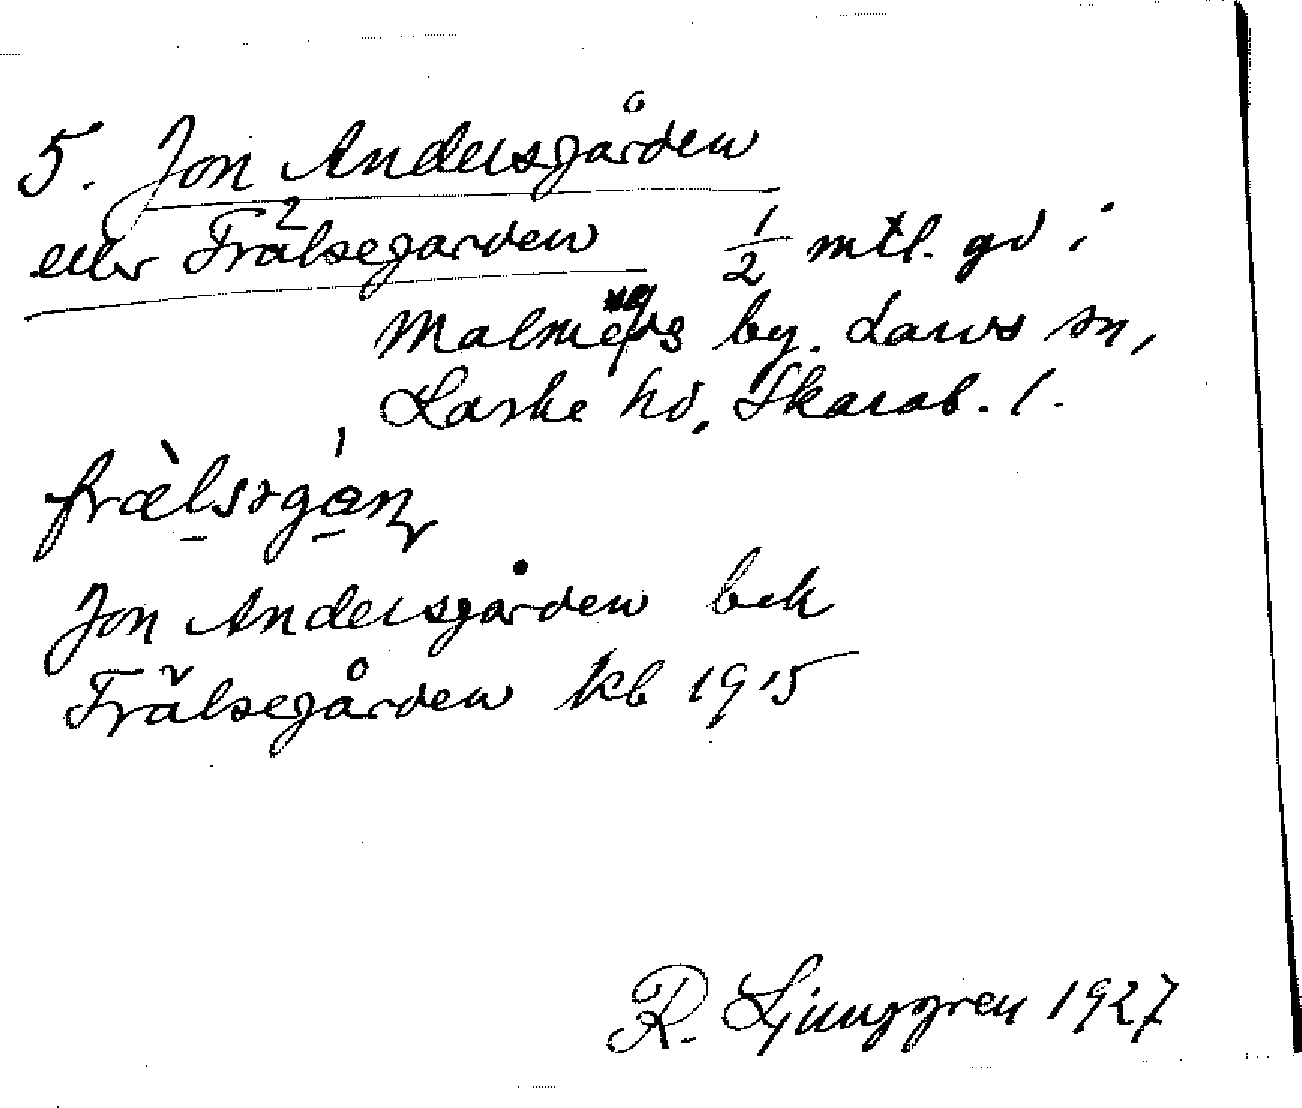 5. Jon Andersgården
eller Frälsegarden 1/2 mtl. gd i
by. Larvs sn,
Laske hd, Skarab. l.
Jon Andersgården bek
Frälsegården kb 1915
R. Ljunggren 1927